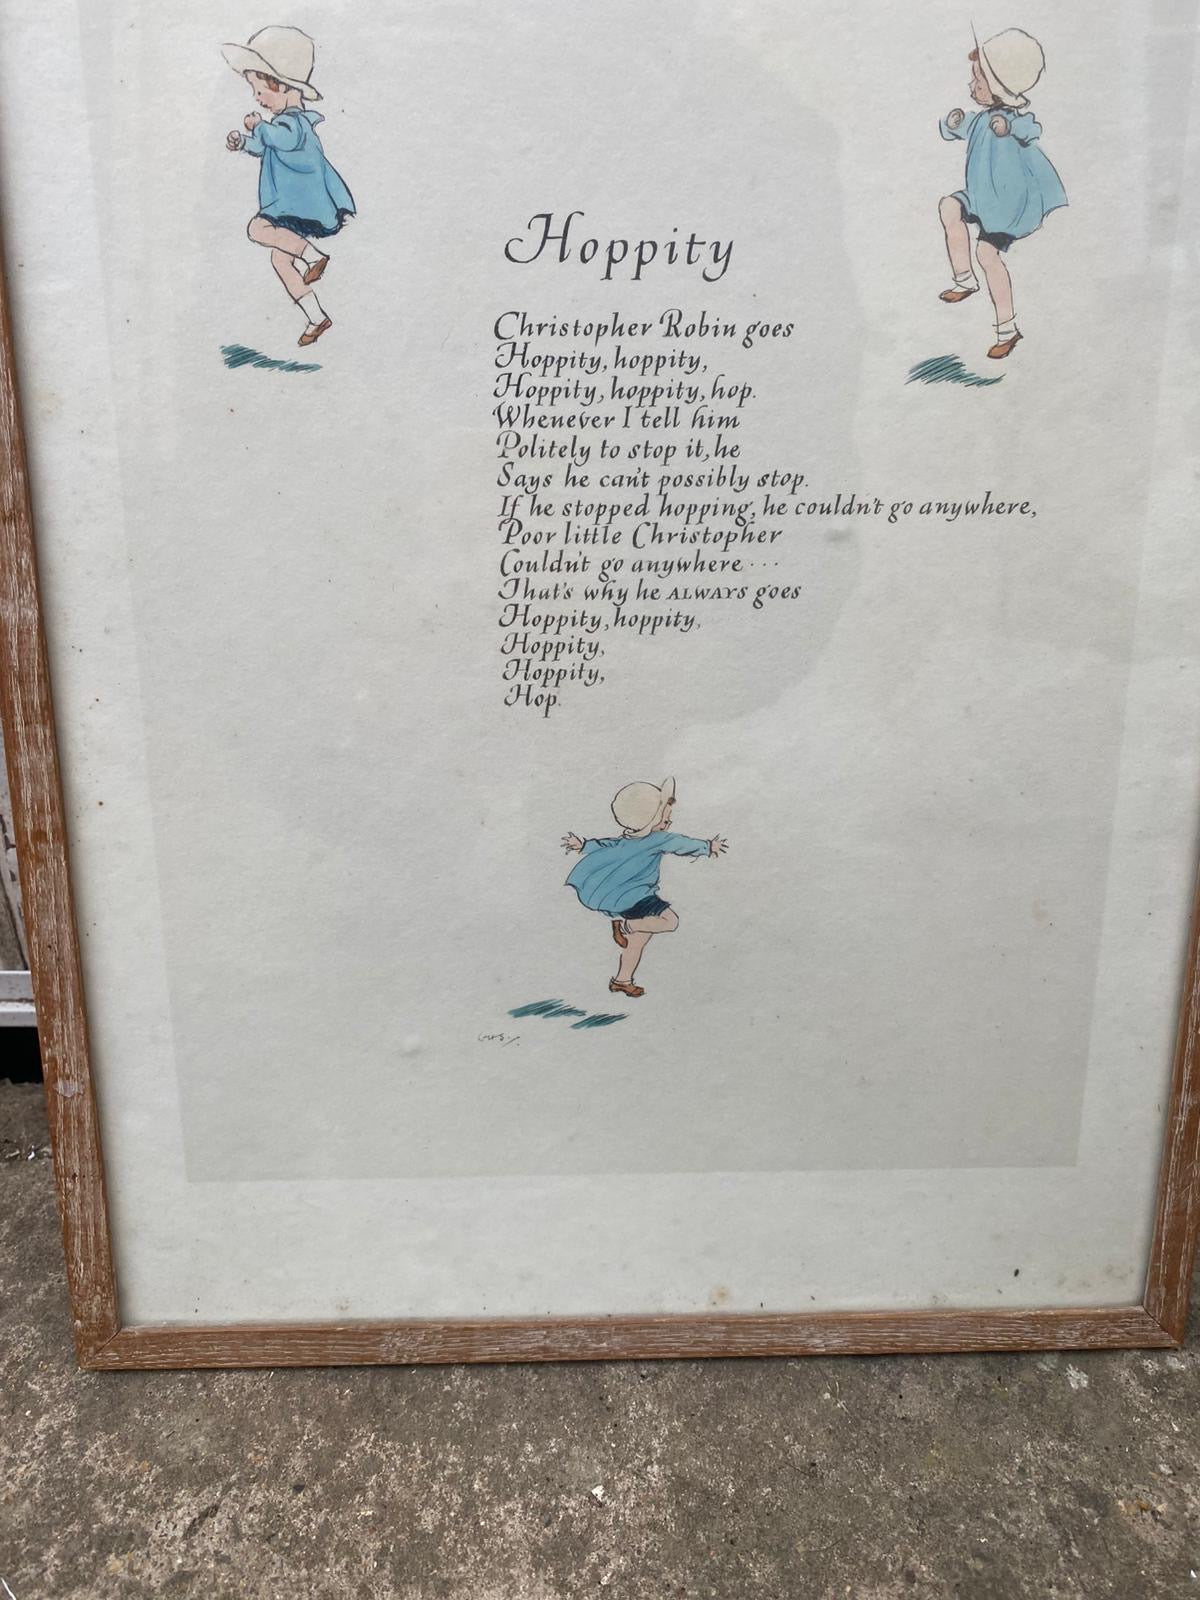 Hoppity
Christopher Robin goes
Hoppity, hoppity,
Hoppity, hoppity, hop.
Whenever I tell him
Politely to stop it, he
Says he can't possibly stop.
If he stopped hopping, he couldn't go anywhere,
Poor little Christopher
Couldn't go anywhere...
That's why he ALWAYS goes
Hoppity, hoppity,
Hoppity,
Hoppity,
Hop.